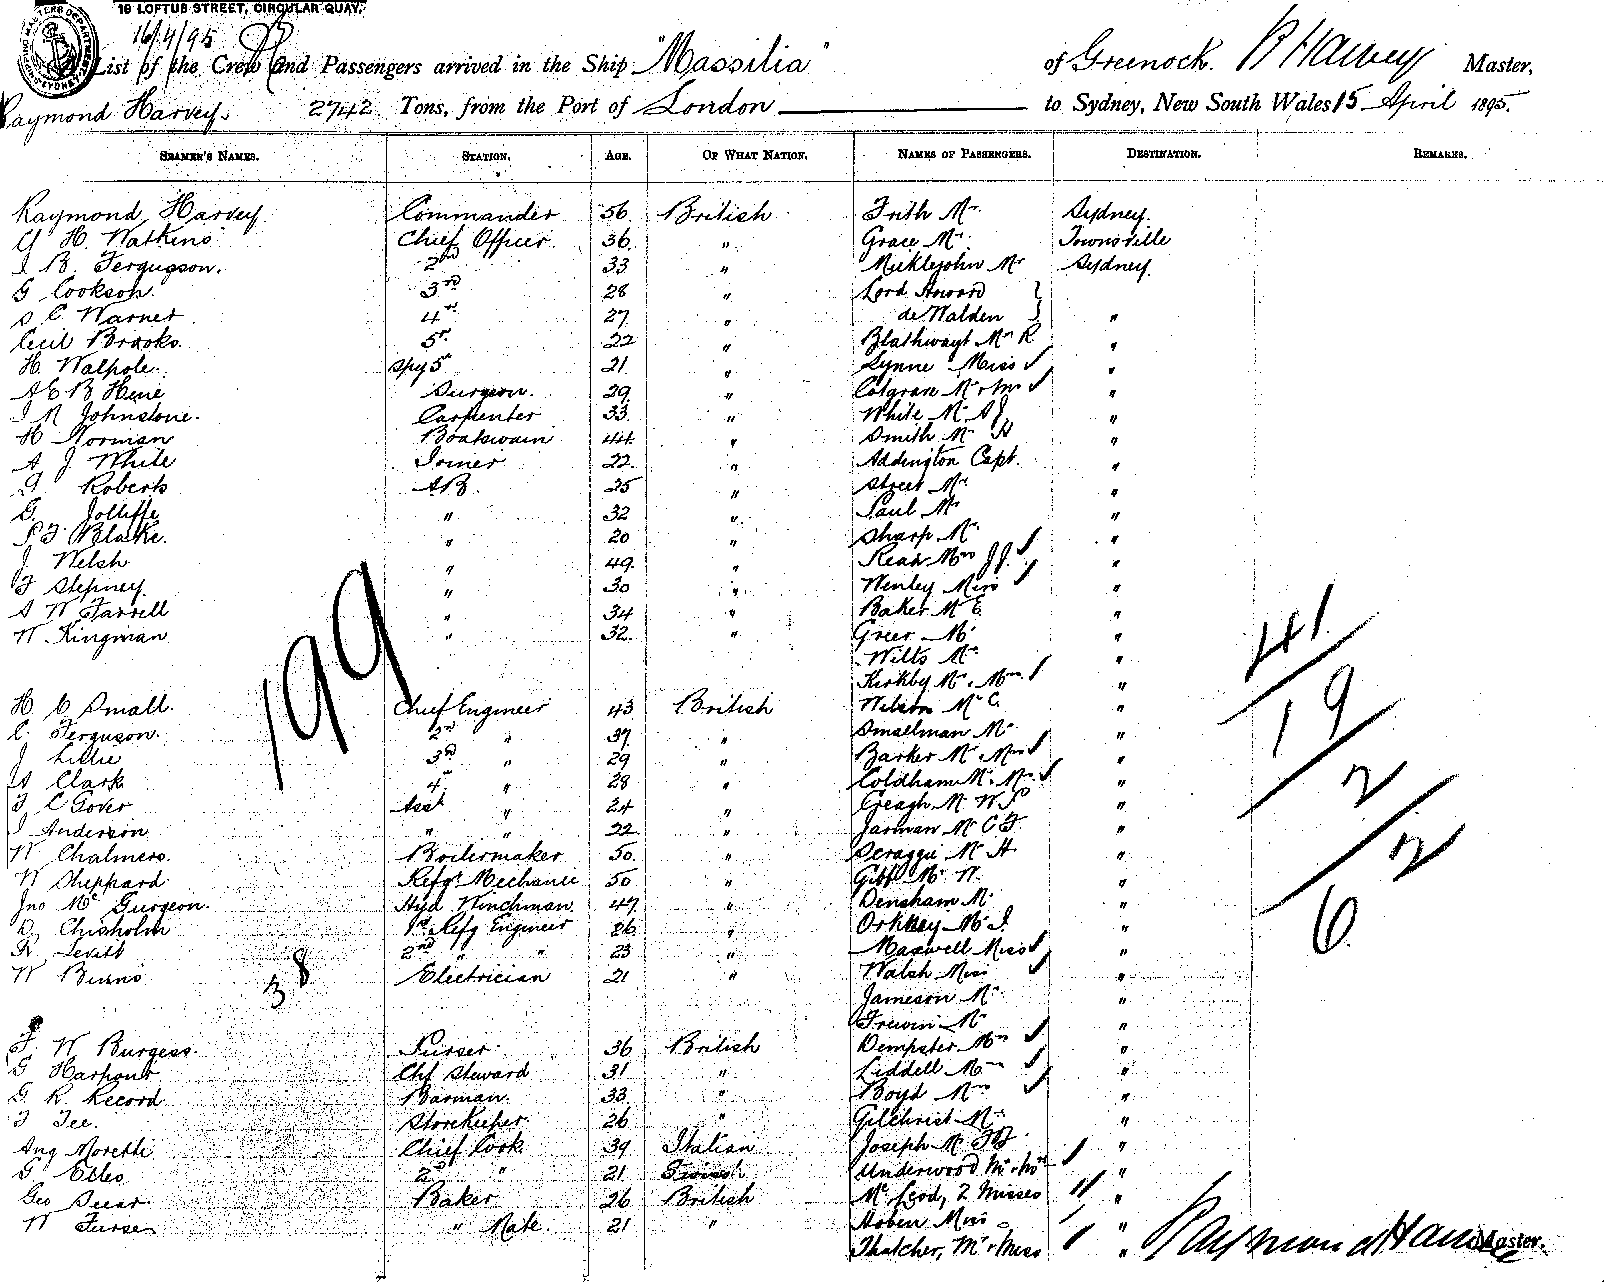 19 LOFTUS STREET, CIRCULAR QUAY.
16/4/95
List of the Crew and Passengers arrived in the Ship "Massilia" of Greenock. R Harvey Master,
Raymond Harvey. 2742 Tons, from the Port of London to Sydney, New South Wales 15 April 1895.
SEAMEN'S NAMES. STATION. AGE. OF WHAT NATION. NAMES OF PASSENGERS. DESTINATION. REMARKS.
Raymond Harvey Commander 56 British Frith Mr Sydney.
G H. Watkins Chief Officer. 36 " Grace Mr Townsville
I B. Fergusson. 2nd 33 " Micklejohn Mr Sydney.
G Cookson. 3rd 28 " Lord Howard }
S C Warner 4th 27 " de Walden } "
Cecil Brooks. 5th 22 " Blathwayt Mr R "
H. Walpole. Spy 5 21 " Lynne Miss "
A E B Hine Surgeon. 29 " Colgrave Mr & Mrs "
I R Johnstone. Carpenter 33 " White Mr A J "
H Norman Boatswain 44 " Smith Mr H "
A J White Joiner 22 " Addington Capt. "
Roberts A.B. 25 " Street Mr "
G. Jolliffe " 32 " Paul Mr "
Blake. " 20 " Sharp Mr "
J Welsh " 49 " Read Mrs J J. "
F Stepney. " 30 " Wenley Miss "
S W Farrell " 34 " Baker Mr E "
W Kingman " 32 " Greer Mr "
Wilts Mr "
Kirkby Mr. Mrs "
H C Small. Chief Engineer 43 British Wilson Mr C. "
C. Ferguson. 2nd " 37 " Smallman Mr "
J Lillie 3rd " 29 " Barker Mr. Mrs "
A Clark 4th " 28 " Coldham Mr. Mrs "
F C Gover Asst " 24 " Creagh Mr W P "
J Anderson " " 22 " Jarman Mr C F. "
W Chalmers. Boilermaker 50 " Scraggie Mr H. "
W Sheppard Refg. Mechanic 50 " Gibb Mr W. "
Jno Mc Gurgeon. Hyd Winchman 47 " Densham Mr "
D. Chisholm 1st Refg Engineer 26 " Orkney Mr J. "
R Levitt 2nd " " 23 " Maxwell Miss "
W Burns Electrician 21 " Walsh Miss "
Jameson Mr "
Frewin Mr "
F W Burgess. Purser 36 British Dempster Mrs "
G Harbour Chf Steward 31 " Liddell Mrs "
G R Record Barman. 33 " Boyd Mrs "
F Tee. Storekeeper 26 " Gilchrist Mr "
Ang Moretti Chief Cook. 39 Italian Joseph Mr "
G Elles 2nd " 21 Swiss Underwood Mr & Mrs "
Geo Dear Baker 26 British McLeod, 2 Misses "
W Furse " Mate. 21 " Hoben Miss "
Thatcher, Mr & Miss "
199
38
41
19
2
2
6
Raymond Harvey Master.